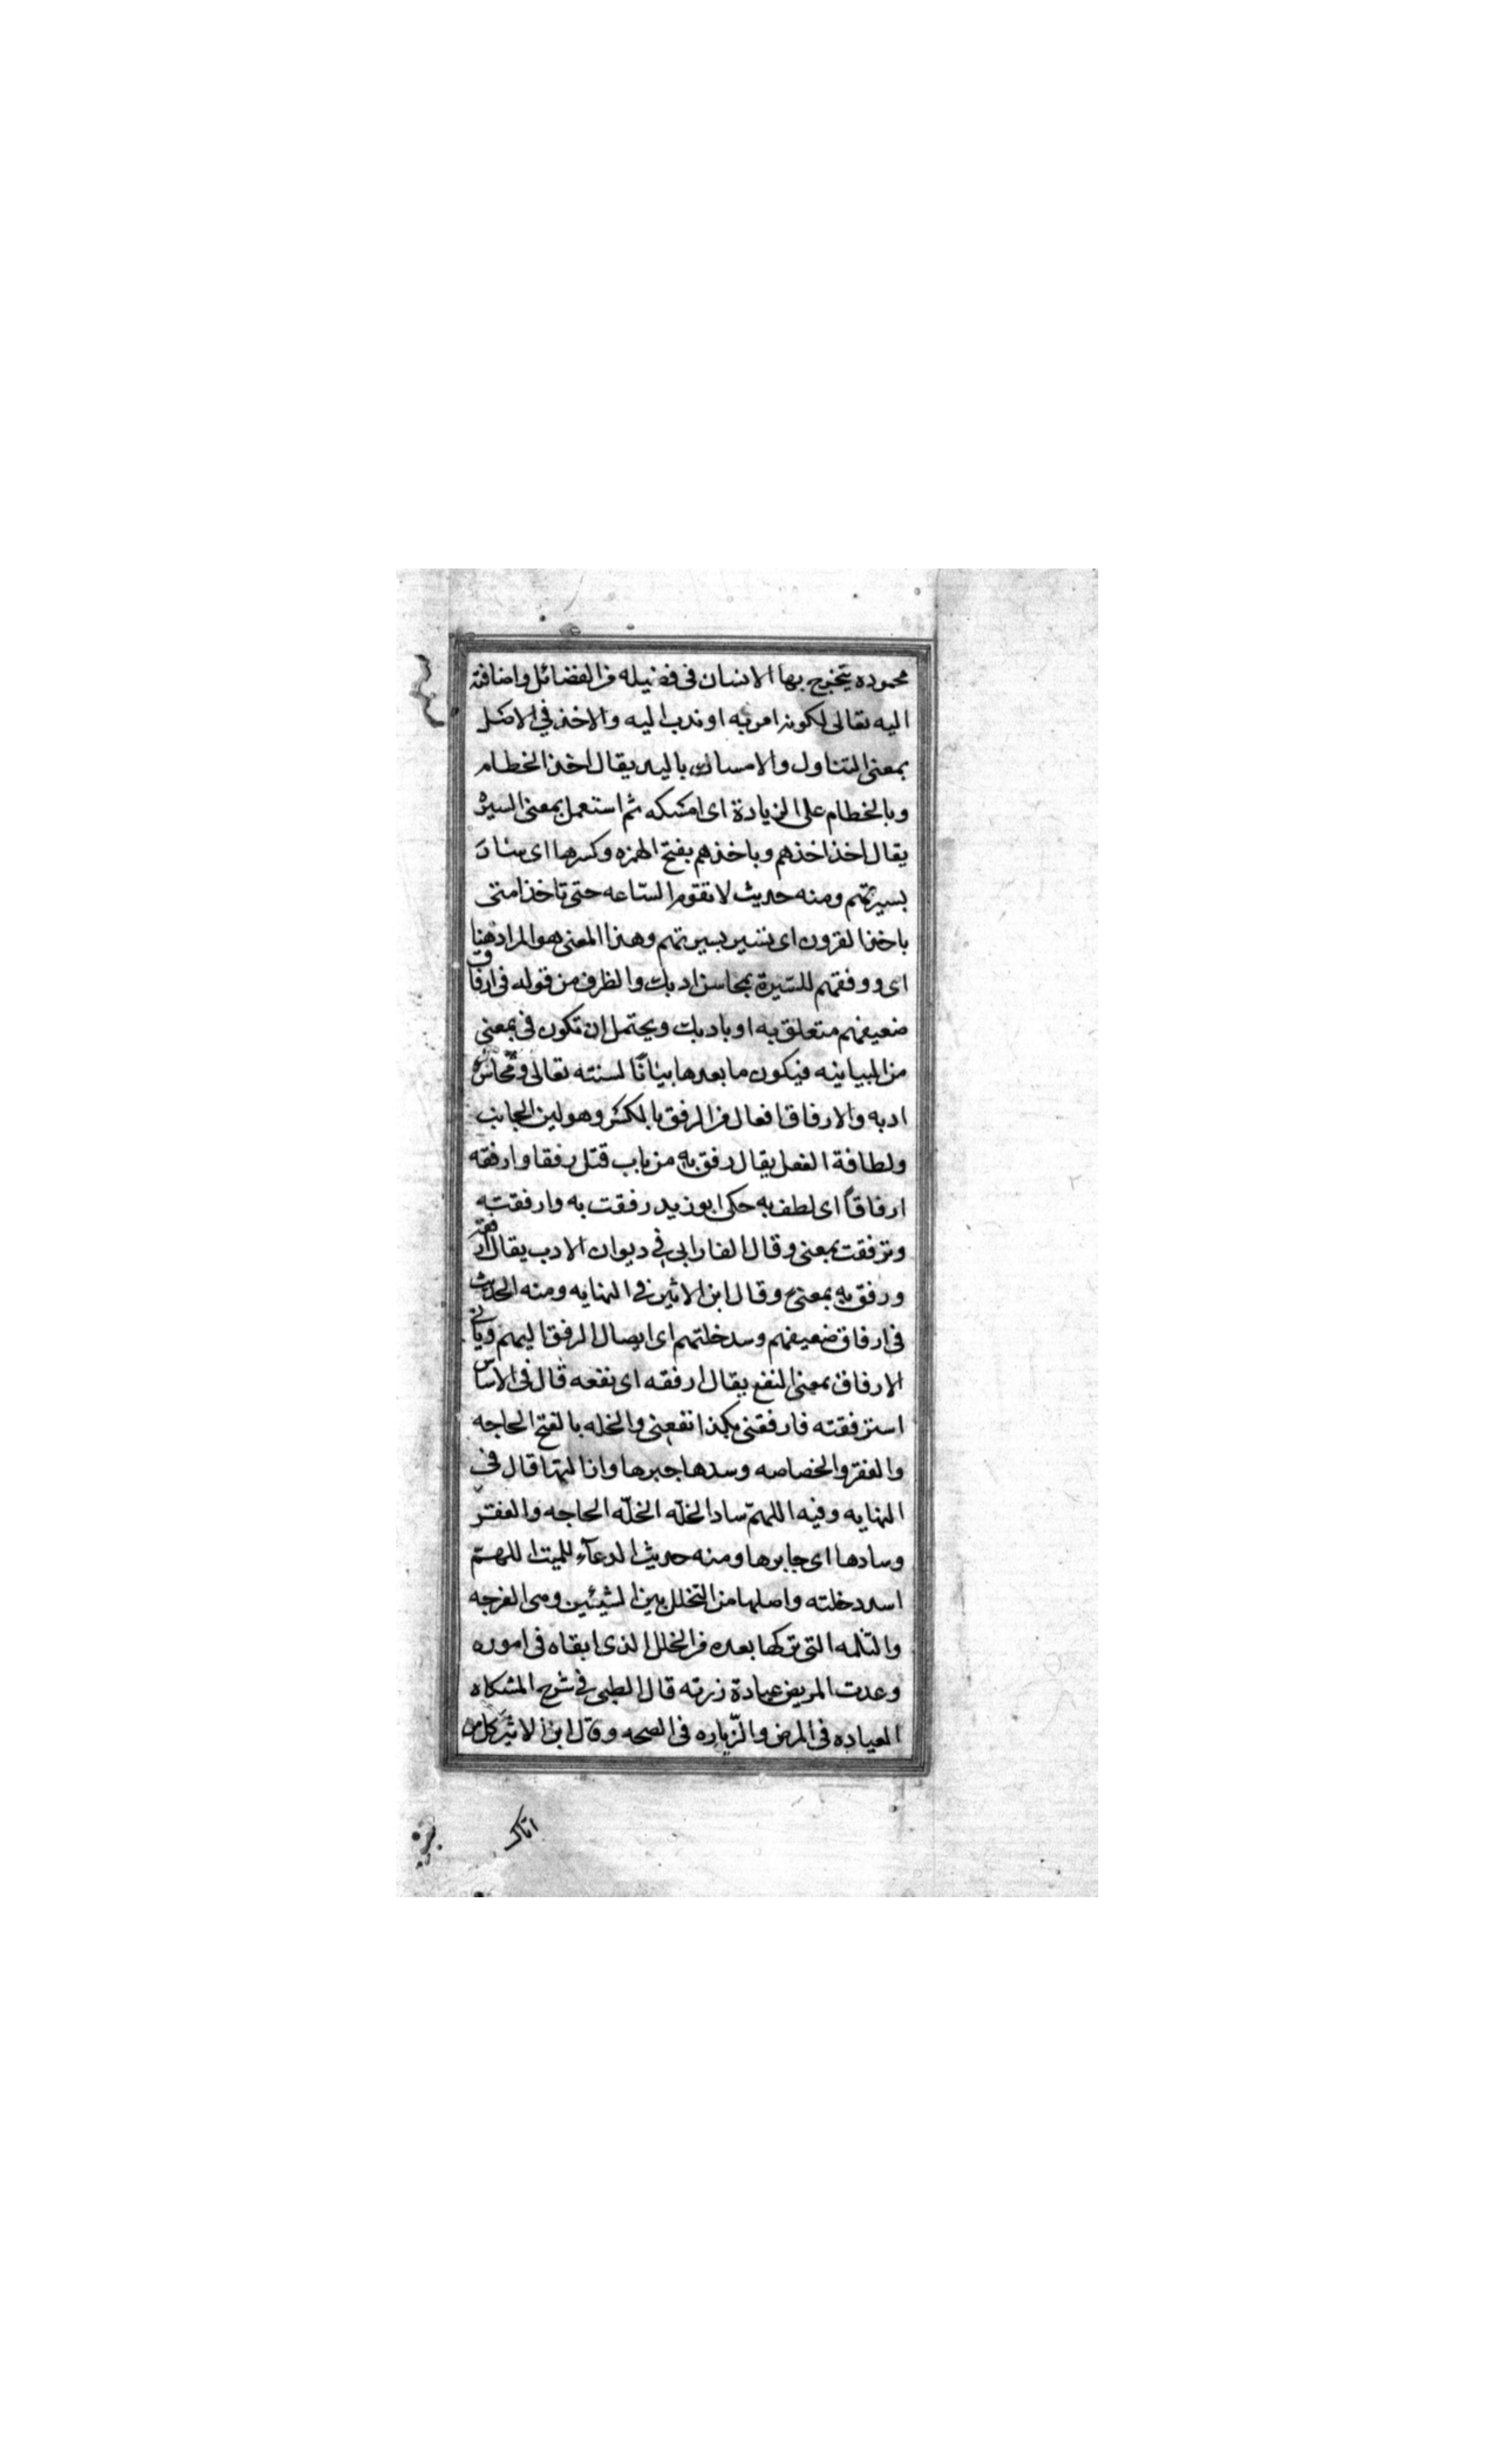 محموده يتخرج بها الانسان فى فضيله من الفضائل واضافته
اليه تعالى لكونه امر به او ندب اليه والاخذ في الاصل
بمعنى التناول والامساك باليد يقال اخذ الخطام
وبالخطام على الزيادة اى امسكه ثم استعمل بمعنى السيره
يقال اخذ اخذهم وباخذهم بفتح الهمزه وكسرها اى سار
بسيرتهم ومنه حديث لا تقوم الساعه حتى تاخذ امتى
باخذ القرون اى تسير بسيرتهم وهذا المعنى هو المراد هنا
اى ووفقهم للسيرة بمحاسن ادبك والظرف من قوله فى ارفاق
ضعيفهم متعلق به او بادبك ويحتمل ان تكون فى بمعنى
من البيانيه فيكون ما بعدها بيانًا لسنته تعالى ومحاسن
ادبه والارفاق افعال من الرفق بالكسر وهو لين الجانب
ولطافة الفعل يقال رفق به من باب قتل رفقا وارفقه
ارفاقاً اى لطف به حكى ابو زيد رفقت به وارفقته
وترفقت بمعنى وقال الفارابى في ديوان الادب يقال ارفقته
ورفق به بمعنى وقال ابن الاثير في النهايه ومنه الحديث
فى ارفاق ضعيفهم وسد خلتهم اى ايصال الرفق اليهم وياتى
الارفاق بمعنى النفع يقال ارفقه اى نفعه قال فى الاساس
استرفقته فارفقنى بكذا نفعنى والخله بالفتح الحاجه
والفقر والخصاصه وسدها جبرها واذا لتها قال فى
النهايه وفيه اللهمّ ساد الخلّه الخلّه الحاجه والفقر
وسادها اى جابرها ومنه حديث الدعآء للميت اللهمّ
اسدد خلته واصلها من التخلل بين الشيئين وهى الفرجه
والثلمه التى تركها بعده من الخلل الذى ابقاه فى اموره
وعدت المريض عيادة زرته قال الطيبى في شرح المشكاه
العياده فى المرض والزّياره فى الصحه وقال ابن الاثير كل من
اتاك